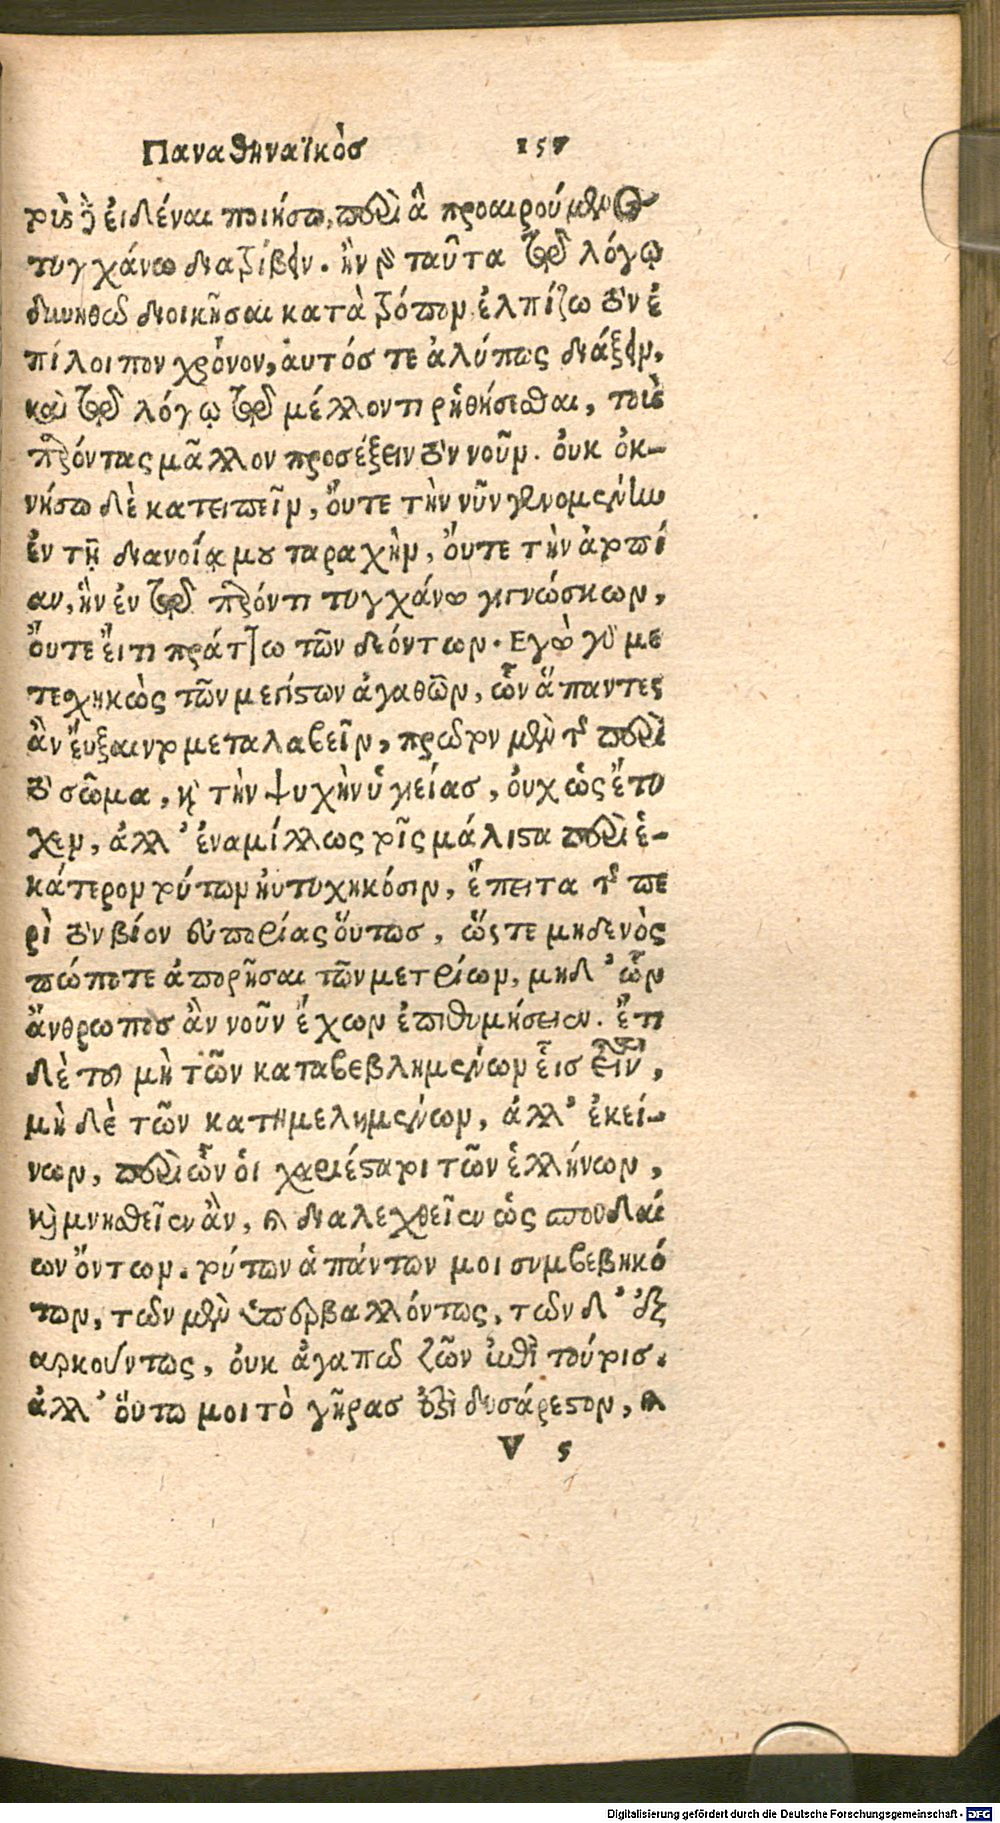 Παναθηναϊκὸσ 157
τοὺς δ᾽ εἰδέναι ποιήσω, περὶ ἃ προαιρούμενος
τυγχάνω διατρίβειν. ἢν γὰρ ταῦτα τῷ λόγῳ
δυνηθῶ διοικῆσαι κατὰ τρόπον, ἐλπίζω τὸν ἐ
πίλοιπον χρόνον, ἀυτόσ τε ἀλύπως διάξειν,
καὶ τῷ λόγῳ τῷ μέλλοντι ῥηθήσεσθαι, τοὺς
παρόντας μᾶλλον προσέξειν τὸν νοῦν. ὀυκ ὀκ-
νήσω δὲ κατειπεῖν, ὄυτε τὴν νῦν γενομένην
ἐν τῇ διανοίᾳ μου ταραχὴν, ὄυτε τὴν ἀτοπί
αν, ἣν ἐν τῷ παρόντι τυγχάνω γιγνώσκων,
ὄυτε ἔιτι πράττω τῶν δεόντων. Εγὼ γὰρ με
τεχηκὼς τῶν μεγίστων ἀγαθῶν, ὧν ἅπαντες
ἂν ἔυξαιντο μεταλαβεῖν, πρῶτον μὲν τῆς περὶ
τὸ σῶμα, καὶ τὴν ψυχὴν ὑγιείασ, ὀυχ ὡς ἔτυ
χεν, ἀλλ᾽ ἐναμίλλως τοῖς μάλιστα περὶ ἑ-
κάτερον τούτων ηὐτυχηκόσιν, ἔπειτα τῆς πε
ρὶ τὸν βίον εὐπορίας ὅυτωσ, ὥςτε μηδενὸς
πώποτε ἀπορῆσαι τῶν μετρίων, μηδ᾽ ὧν
ἄνθρωποσ ἂν νοῦν ἔχων ἐπιθυμήσειεν. ἔτι
δὲ τοῦ μὴ τῶν καταβεβλημένων εἷσ εἶναι,
μὴ δὲ τῶν κατημελημένων, ἀλλ᾽ ἐκεί-
νων, περὶ ὧν ὁι χαριέστατοι τῶν ἑλλήνων,
καὶ μνησθεῖεν ἂν, καὶ διαλεχθεῖεν ὡς σπουδαί
ων ὄντων. τούτων ἁπάντων μοι συμβεβηκό
των, τῶν μὲν ὑπερβαλλόντως, τῶν δ᾽ ἐξ
αρκούντως, ὀυκ ἀγαπῶ ζῶν ἐπὶ τούτοισ.
ἀλλ᾽ ὅυτω μοι τὸ γῆρασ ἐστὶ δυσάρεστον, καὶ
V 5
Digitalisierung gefördert durch die Deutsche Forschungsgemeinschaft - DFG